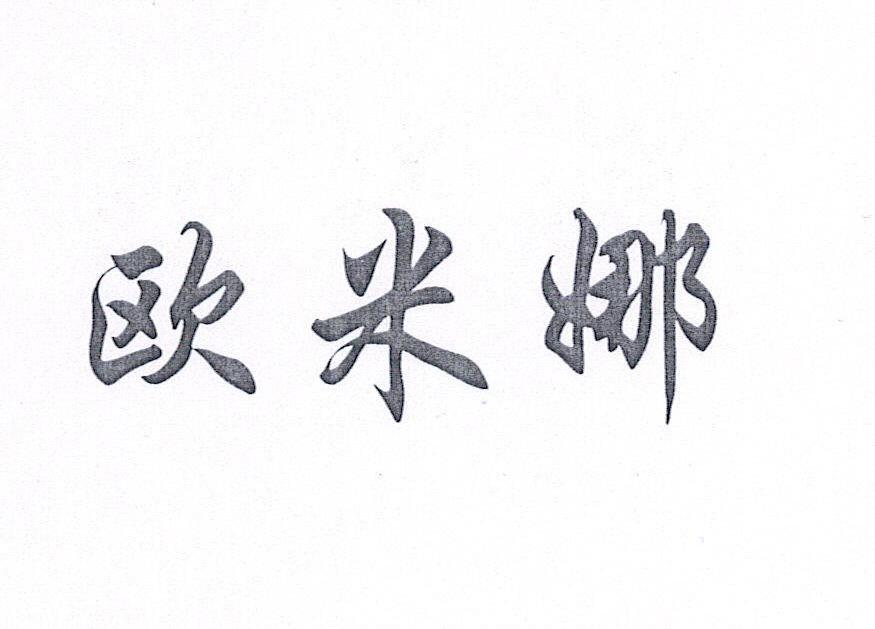 欧米娜